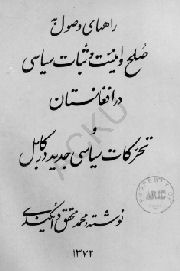 راههای وصول به
صلح و امنیت و ثبات سیاسی
در افغانستان
و
تحرکات سیاسی جدید در کابل
نوشته: محمد محقق
۱۳۷۲
ACKU
ARIC